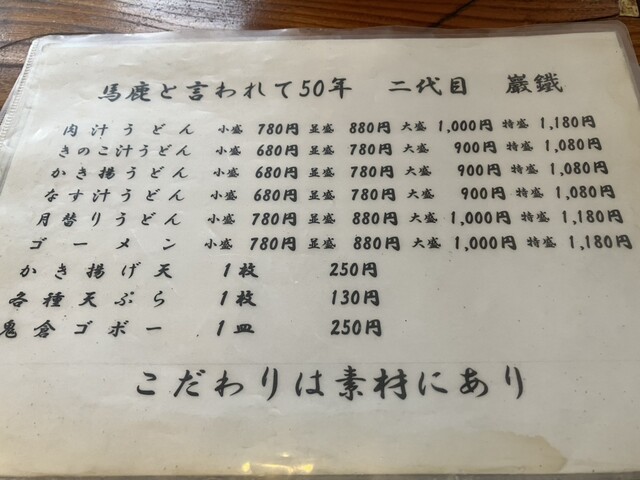 馬鹿と言われて50年 二代目 巌鐵
肉汁うどん 小盛 780円 並盛 880円 大盛 1,000円 特盛 1,180円
きのこ汁うどん 小盛 680円 並盛 780円 大盛 900円 特盛 1,080円
かき揚うどん 小盛 680円 並盛 780円 大盛 900円 特盛 1,080円
なす汁うどん 小盛 680円 並盛 780円 大盛 900円 特盛 1,080円
月替りうどん 小盛 780円 並盛 880円 大盛 1,000円 特盛 1,180円
ゴーメン 小盛 780円 並盛 880円 大盛 1,000円 特盛 1,180円
かき揚げ天 1枚 250円
各種天ぷら 1枚 130円
鬼倉ゴボー 1皿 250円
こだわりは素材にあり